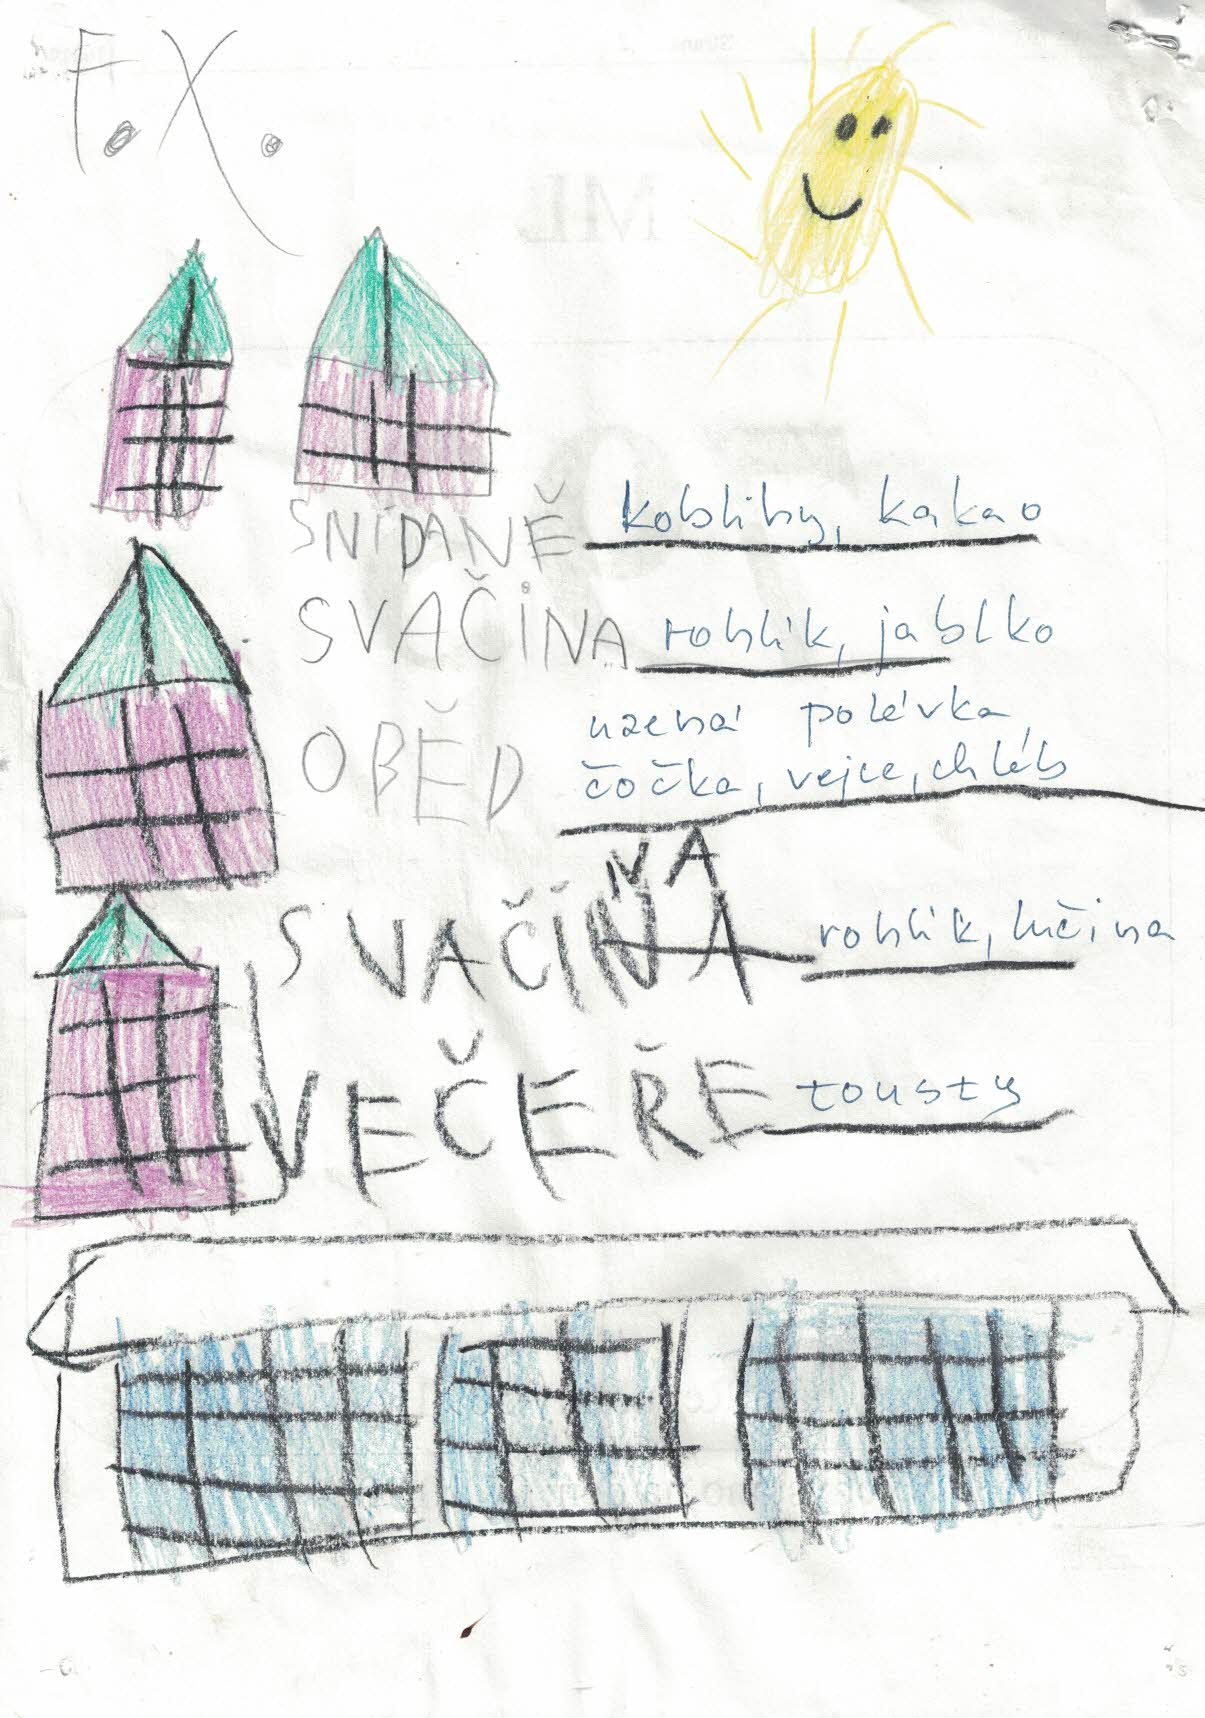 F.X.
SNÍDANĚ koblihy, kakao
SVAČINA rohlík, jablko
OBĚD uzená polévka,
čočka, vejce, chléb
NA
SVAČINA rohlík, lučina
VEČEŘE tousty